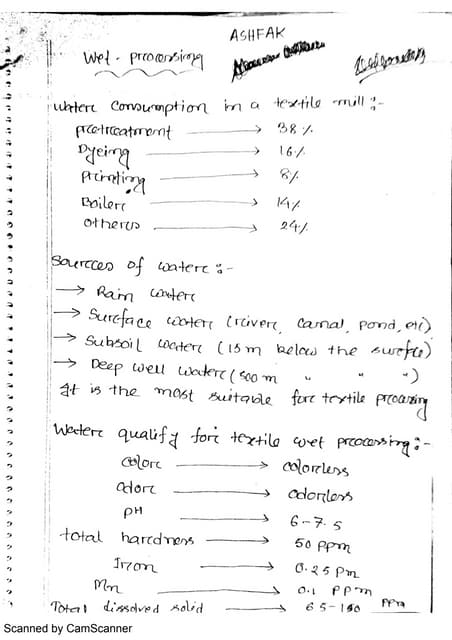 ASHFAK
Wet - processing
Water consumption in a textile mill :-
pretreatment → 38%
Dyeing → 16%
Printing → 8%
Boiler → 14%
others → 24%
Sources of water :-
→ Rain water
→ Surface water (river, canal, pond, etc)
→ Subsoil water (15m below the surfce)
→ Deep well water (500m " " ")
It is the most suitable for textile processing
Water qualify for textile wet processing :-
color → colorless
odor → odorless
pH → 6-7.5
total hardness → 50 ppm
Iron → 0.25 Pm
Mn → 0.1 PPm
Total dissolved solid → 65-150 PPm
Scanned by CamScanner